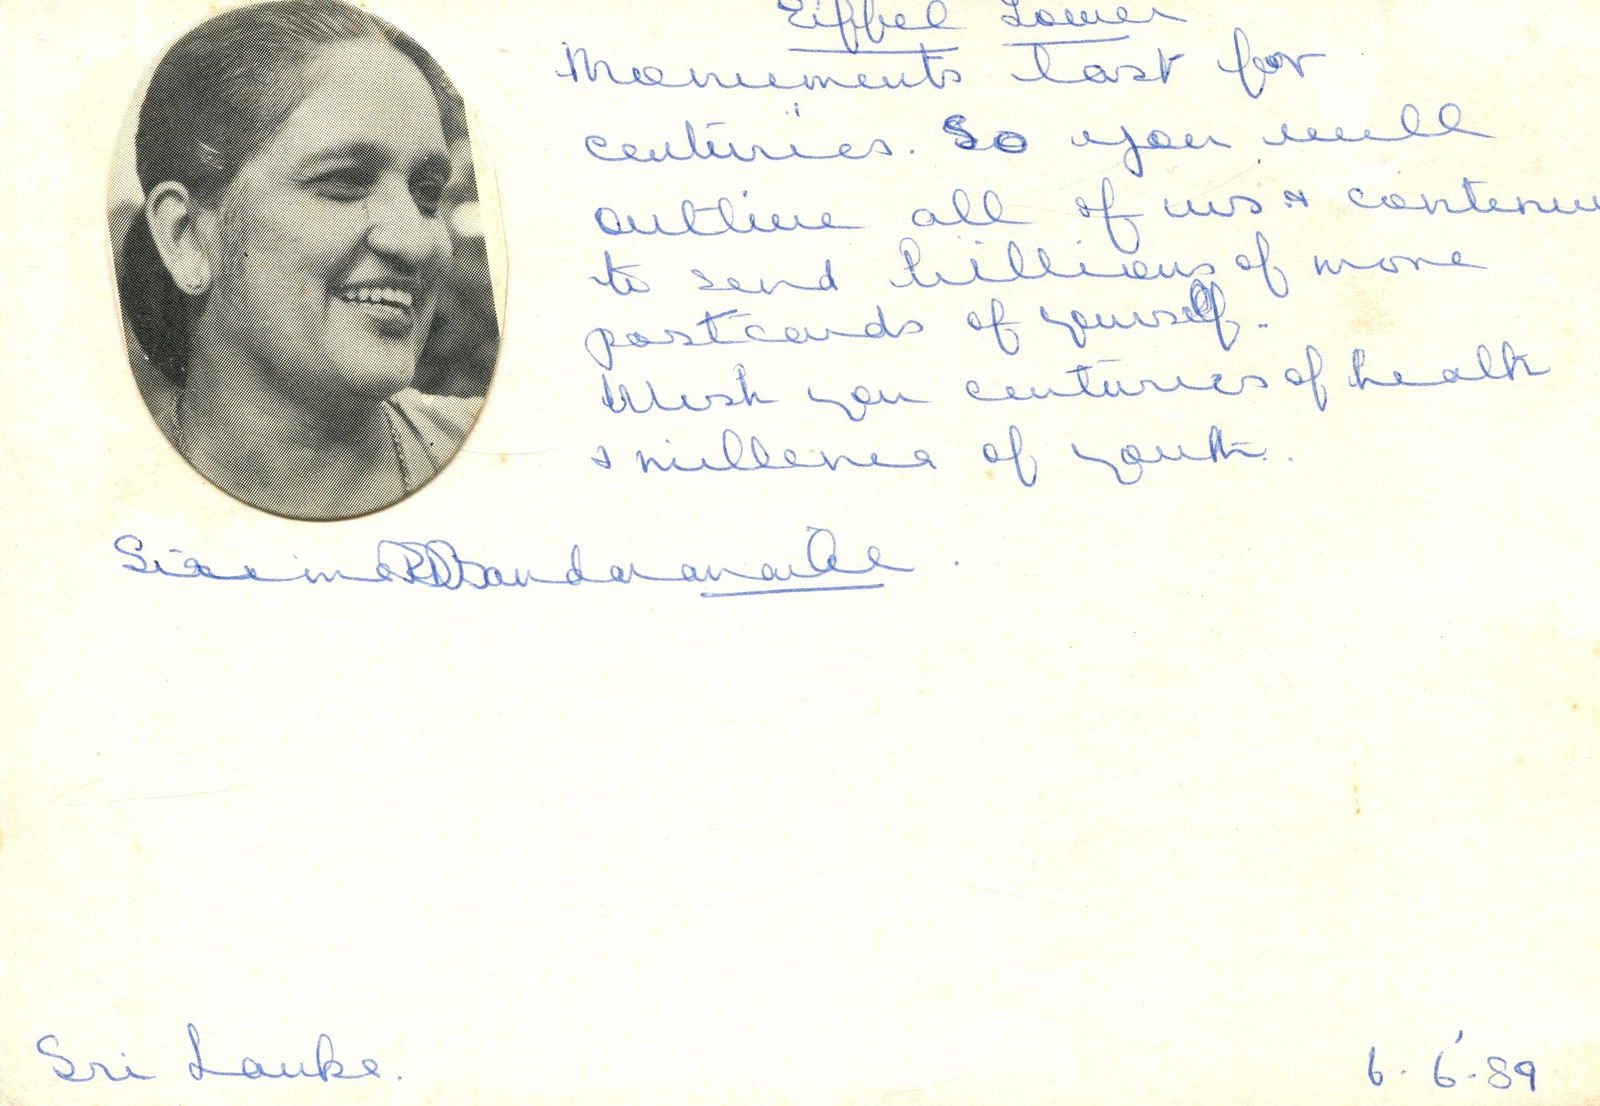 Eiffel Tower
Monuments last for
centuries. So you will
outlive all of us & continu
to send billions of more
postcards of yourself.
Wish you centuries of health
& millenia of youth.
Sirima R D Bandaranaike.
Sri Lanka.
6.6.89